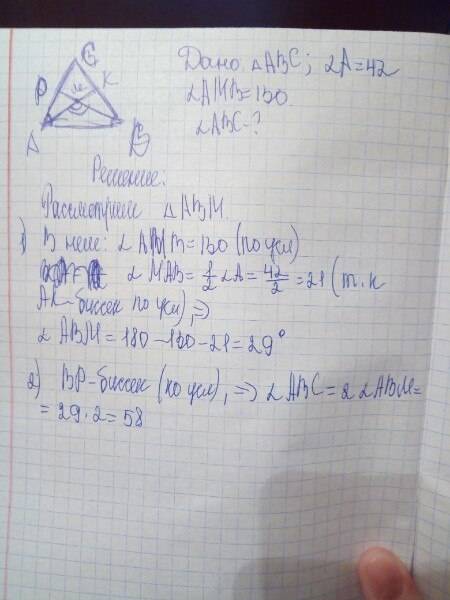 C
P
K
M
A
B
Дано: △ABC; ∠A=42
∠AMB=130
∠ABC-?
Решение:
Рассмотрим △ABM.
1) В нём: ∠AMB=130 (по усл)
∠MAB=1/2∠A=42/2=21 (т.к
AK-биссек по усл), =>
∠ABM=180-130-21=29°
2) BP-биссек (по усл), => ∠ABC=2∠ABM=
=29·2=58